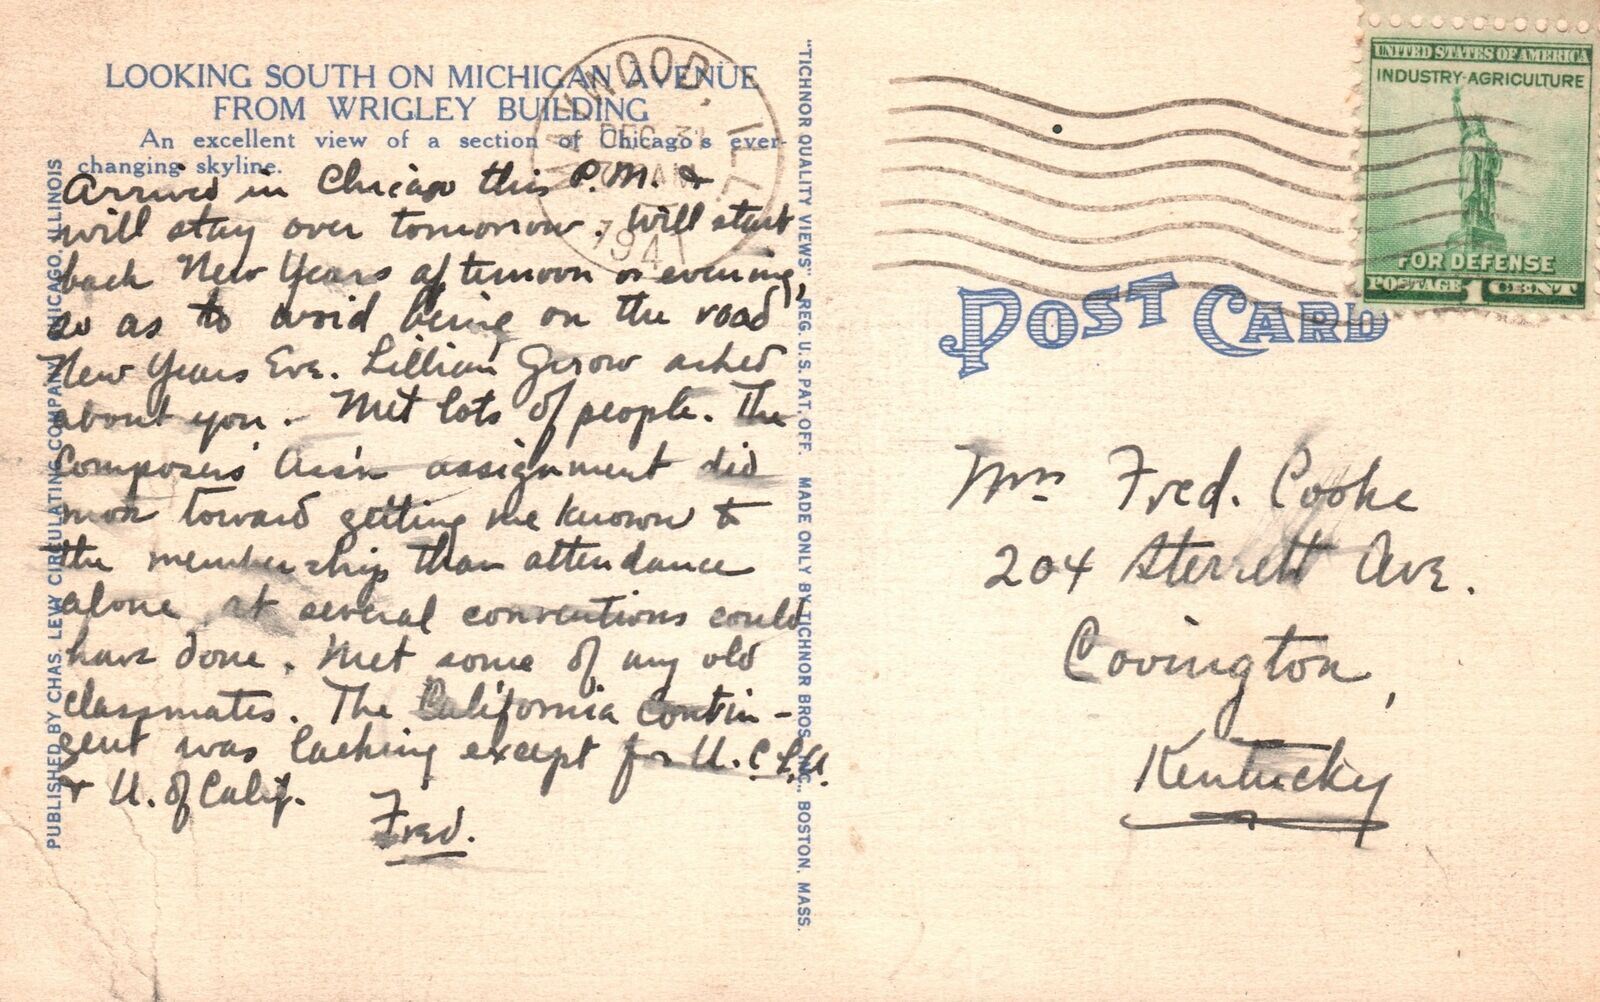 LOOKING SOUTH ON MICHIGAN AVENUE
FROM WRIGLEY BUILDING
An excellent view of a section of Chicago's ever-
changing skyline.
Arrived in Chicago this P.M. &
will stay over tomorrow. Will start
back New Years afternoon or evening,
so as to avoid being on the road
New Years Eve. Lillian Gerow asked
about you. - Met lots of people. The
Composers' Ass'n assignment did
more toward getting me known to
the membership than attendance
alone at several conventions could
have done. Met some of my old
classmates. The California contin-
gent was lacking except for U.C.L.A.
& U. of Calif.
Fred.
PUBLISHED BY CHAS. LEVY CIRCULATING COMPANY, CHICAGO, ILLINOIS
"TICHNOR QUALITY VIEWS" REG. U.S. PAT. OFF. MADE ONLY BY TICHNOR BROS., INC., BOSTON, MASS.
MAYWOOD, ILL.
DEC 31
AM
1941
UNITED STATES OF AMERICA
INDUSTRY-AGRICULTURE
FOR DEFENSE
POSTAGE 1 CENT
POST CARD
Mrs Fred. Cooke
204 Sterrett Ave.
Covington,
Kentucky